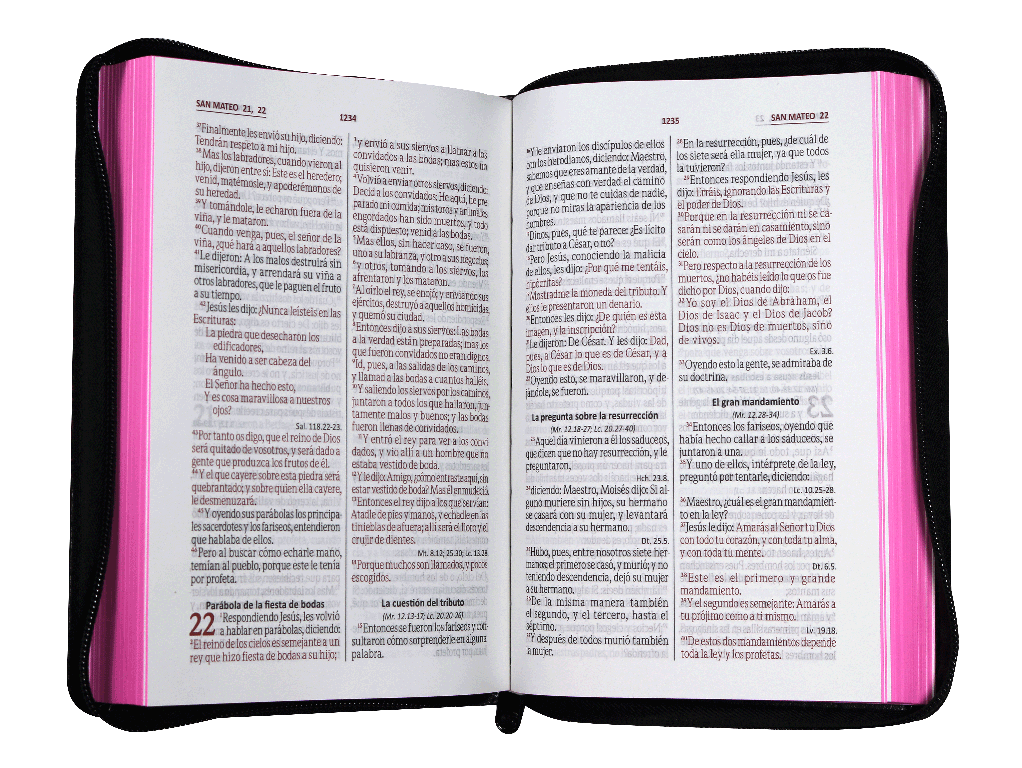 SAN MATEO 21, 22
1234
³⁷Finalmente les envió su hijo, diciendo:
Tendrán respeto a mi hijo.
³⁸Mas los labradores, cuando vieron al
hijo, dijeron entre sí: Este es el heredero;
venid, matémosle, y apoderémonos de
su heredad.
³⁹Y tomándole, le echaron fuera de la
viña, y le mataron.
⁴⁰Cuando venga, pues, el señor de la
viña, ¿qué hará a aquellos labradores?
⁴¹Le dijeron: A los malos destruirá sin
misericordia, y arrendará su viña a
otros labradores, que le paguen el fruto
a su tiempo.
⁴²Jesús les dijo: ¿Nunca leísteis en las
Escrituras:
La piedra que desecharon los
edificadores,
Ha venido a ser cabeza del
ángulo.
El Señor ha hecho esto,
Y es cosa maravillosa a nuestros
ojos?
Sal. 118.22-23.
⁴³Por tanto os digo, que el reino de Dios
será quitado de vosotros, y será dado a
gente que produzca los frutos de él.
⁴⁴Y el que cayere sobre esta piedra será
quebrantado; y sobre quien ella cayere,
le desmenuzará.
⁴⁵Y oyendo sus parábolas los principa-
les sacerdotes y los fariseos, entendieron
que hablaba de ellos.
⁴⁶Pero al buscar cómo echarle mano,
temían al pueblo, porque este le tenía
por profeta.
Parábola de la fiesta de bodas
22 ¹Respondiendo Jesús, les volvió
a hablar en parábolas, diciendo:
²El reino de los cielos es semejante a un
rey que hizo fiesta de bodas a su hijo;
³y envió a sus siervos a llamar a los
convidados a las bodas; mas estos no
quisieron venir.
⁴Volvió a enviar otros siervos, diciendo:
Decid a los convidados: He aquí, he pre-
parado mi comida; mis toros y animales
engordados han sido muertos, y todo
está dispuesto; venid a las bodas.
⁵Mas ellos, sin hacer caso, se fueron,
uno a su labranza, y otro a sus negocios;
⁶y otros, tomando a los siervos, los
afrentaron y los mataron.
⁷Al oírlo el rey, se enojó; y enviando sus
ejércitos, destruyó a aquellos homicidas,
y quemó su ciudad.
⁸Entonces dijo a sus siervos: Las bodas
a la verdad están preparadas; mas los
que fueron convidados no eran dignos.
⁹Id, pues, a las salidas de los caminos,
y llamad a las bodas a cuantos halléis.
¹⁰Y saliendo los siervos por los caminos,
juntaron a todos los que hallaron, jun-
tamente malos y buenos; y las bodas
fueron llenas de convidados.
¹¹Y entró el rey para ver a los convi-
dados, y vio allí a un hombre que no
estaba vestido de boda.
¹²Y le dijo: Amigo, ¿cómo entraste aquí, sin
estar vestido de boda? Mas él enmudeció.
¹³Entonces el rey dijo a los que servían:
Atadle de pies y manos, y echadle en las
tinieblas de afuera; allí será el lloro y el
crujir de dientes.
Mt. 8.12; 25.30; Lc. 13.28.
¹⁴Porque muchos son llamados, y pocos
escogidos.
La cuestión del tributo
(Mr. 12.13-17; Lc. 20.20-26)
¹⁵Entonces se fueron los fariseos y con-
sultaron cómo sorprenderle en alguna
palabra.
1235
SAN MATEO 22
¹⁶Y le enviaron los discípulos de ellos
con los herodianos, diciendo: Maestro,
sabemos que eres amante de la verdad,
y que enseñas con verdad el camino
de Dios, y que no te cuidas de nadie,
porque no miras la apariencia de los
hombres.
¹⁷Dinos, pues, qué te parece: ¿Es lícito
dar tributo a César, o no?
¹⁸Pero Jesús, conociendo la malicia
de ellos, les dijo: ¿Por qué me tentáis,
hipócritas?
¹⁹Mostradme la moneda del tributo. Y
ellos le presentaron un denario.
²⁰Entonces les dijo: ¿De quién es esta
imagen, y la inscripción?
²¹Le dijeron: De César. Y les dijo: Dad,
pues, a César lo que es de César, y a
Dios lo que es de Dios.
²²Oyendo esto, se maravillaron, y de-
jándole, se fueron.
La pregunta sobre la resurrección
(Mr. 12.18-27; Lc. 20.27-40)
²³Aquel día vinieron a él los saduceos,
que dicen que no hay resurrección, y le
preguntaron,
Hch. 23.8.
²⁴diciendo: Maestro, Moisés dijo: Si al-
guno muriere sin hijos, su hermano
se casará con su mujer, y levantará
descendencia a su hermano.
Dt. 25.5.
²⁵Hubo, pues, entre nosotros siete her-
manos; el primero se casó, y murió; y no
teniendo descendencia, dejó su mujer
a su hermano.
²⁶De la misma manera también
el segundo, y el tercero, hasta el
séptimo.
²⁷Y después de todos murió también
la mujer.
²⁸En la resurrección, pues, ¿de cuál de
los siete será ella mujer, ya que todos
la tuvieron?
²⁹Entonces respondiendo Jesús, les
dijo: Erráis, ignorando las Escrituras y
el poder de Dios.
³⁰Porque en la resurrección ni se ca-
sarán ni se darán en casamiento, sino
serán como los ángeles de Dios en el
cielo.
³¹Pero respecto a la resurrección de los
muertos, ¿no habéis leído lo que os fue
dicho por Dios, cuando dijo:
³²Yo soy el Dios de Abraham, el
Dios de Isaac y el Dios de Jacob?
Dios no es Dios de muertos, sino
de vivos.
Ex. 3.6.
³³Oyendo esto la gente, se admiraba de
su doctrina.
El gran mandamiento
(Mr. 12.28-34)
³⁴Entonces los fariseos, oyendo que
había hecho callar a los saduceos, se
juntaron a una.
³⁵Y uno de ellos, intérprete de la ley,
preguntó por tentarle, diciendo:
Lc. 10.25-28.
³⁶Maestro, ¿cuál es el gran mandamien-
to en la ley?
³⁷Jesús le dijo: Amarás al Señor tu Dios
con todo tu corazón, y con toda tu alma,
y con toda tu mente.
Dt. 6.5.
³⁸Este es el primero y grande
mandamiento.
³⁹Y el segundo es semejante: Amarás a
tu prójimo como a ti mismo.
Lv. 19.18.
⁴⁰De estos dos mandamientos depende
toda la ley y los profetas.